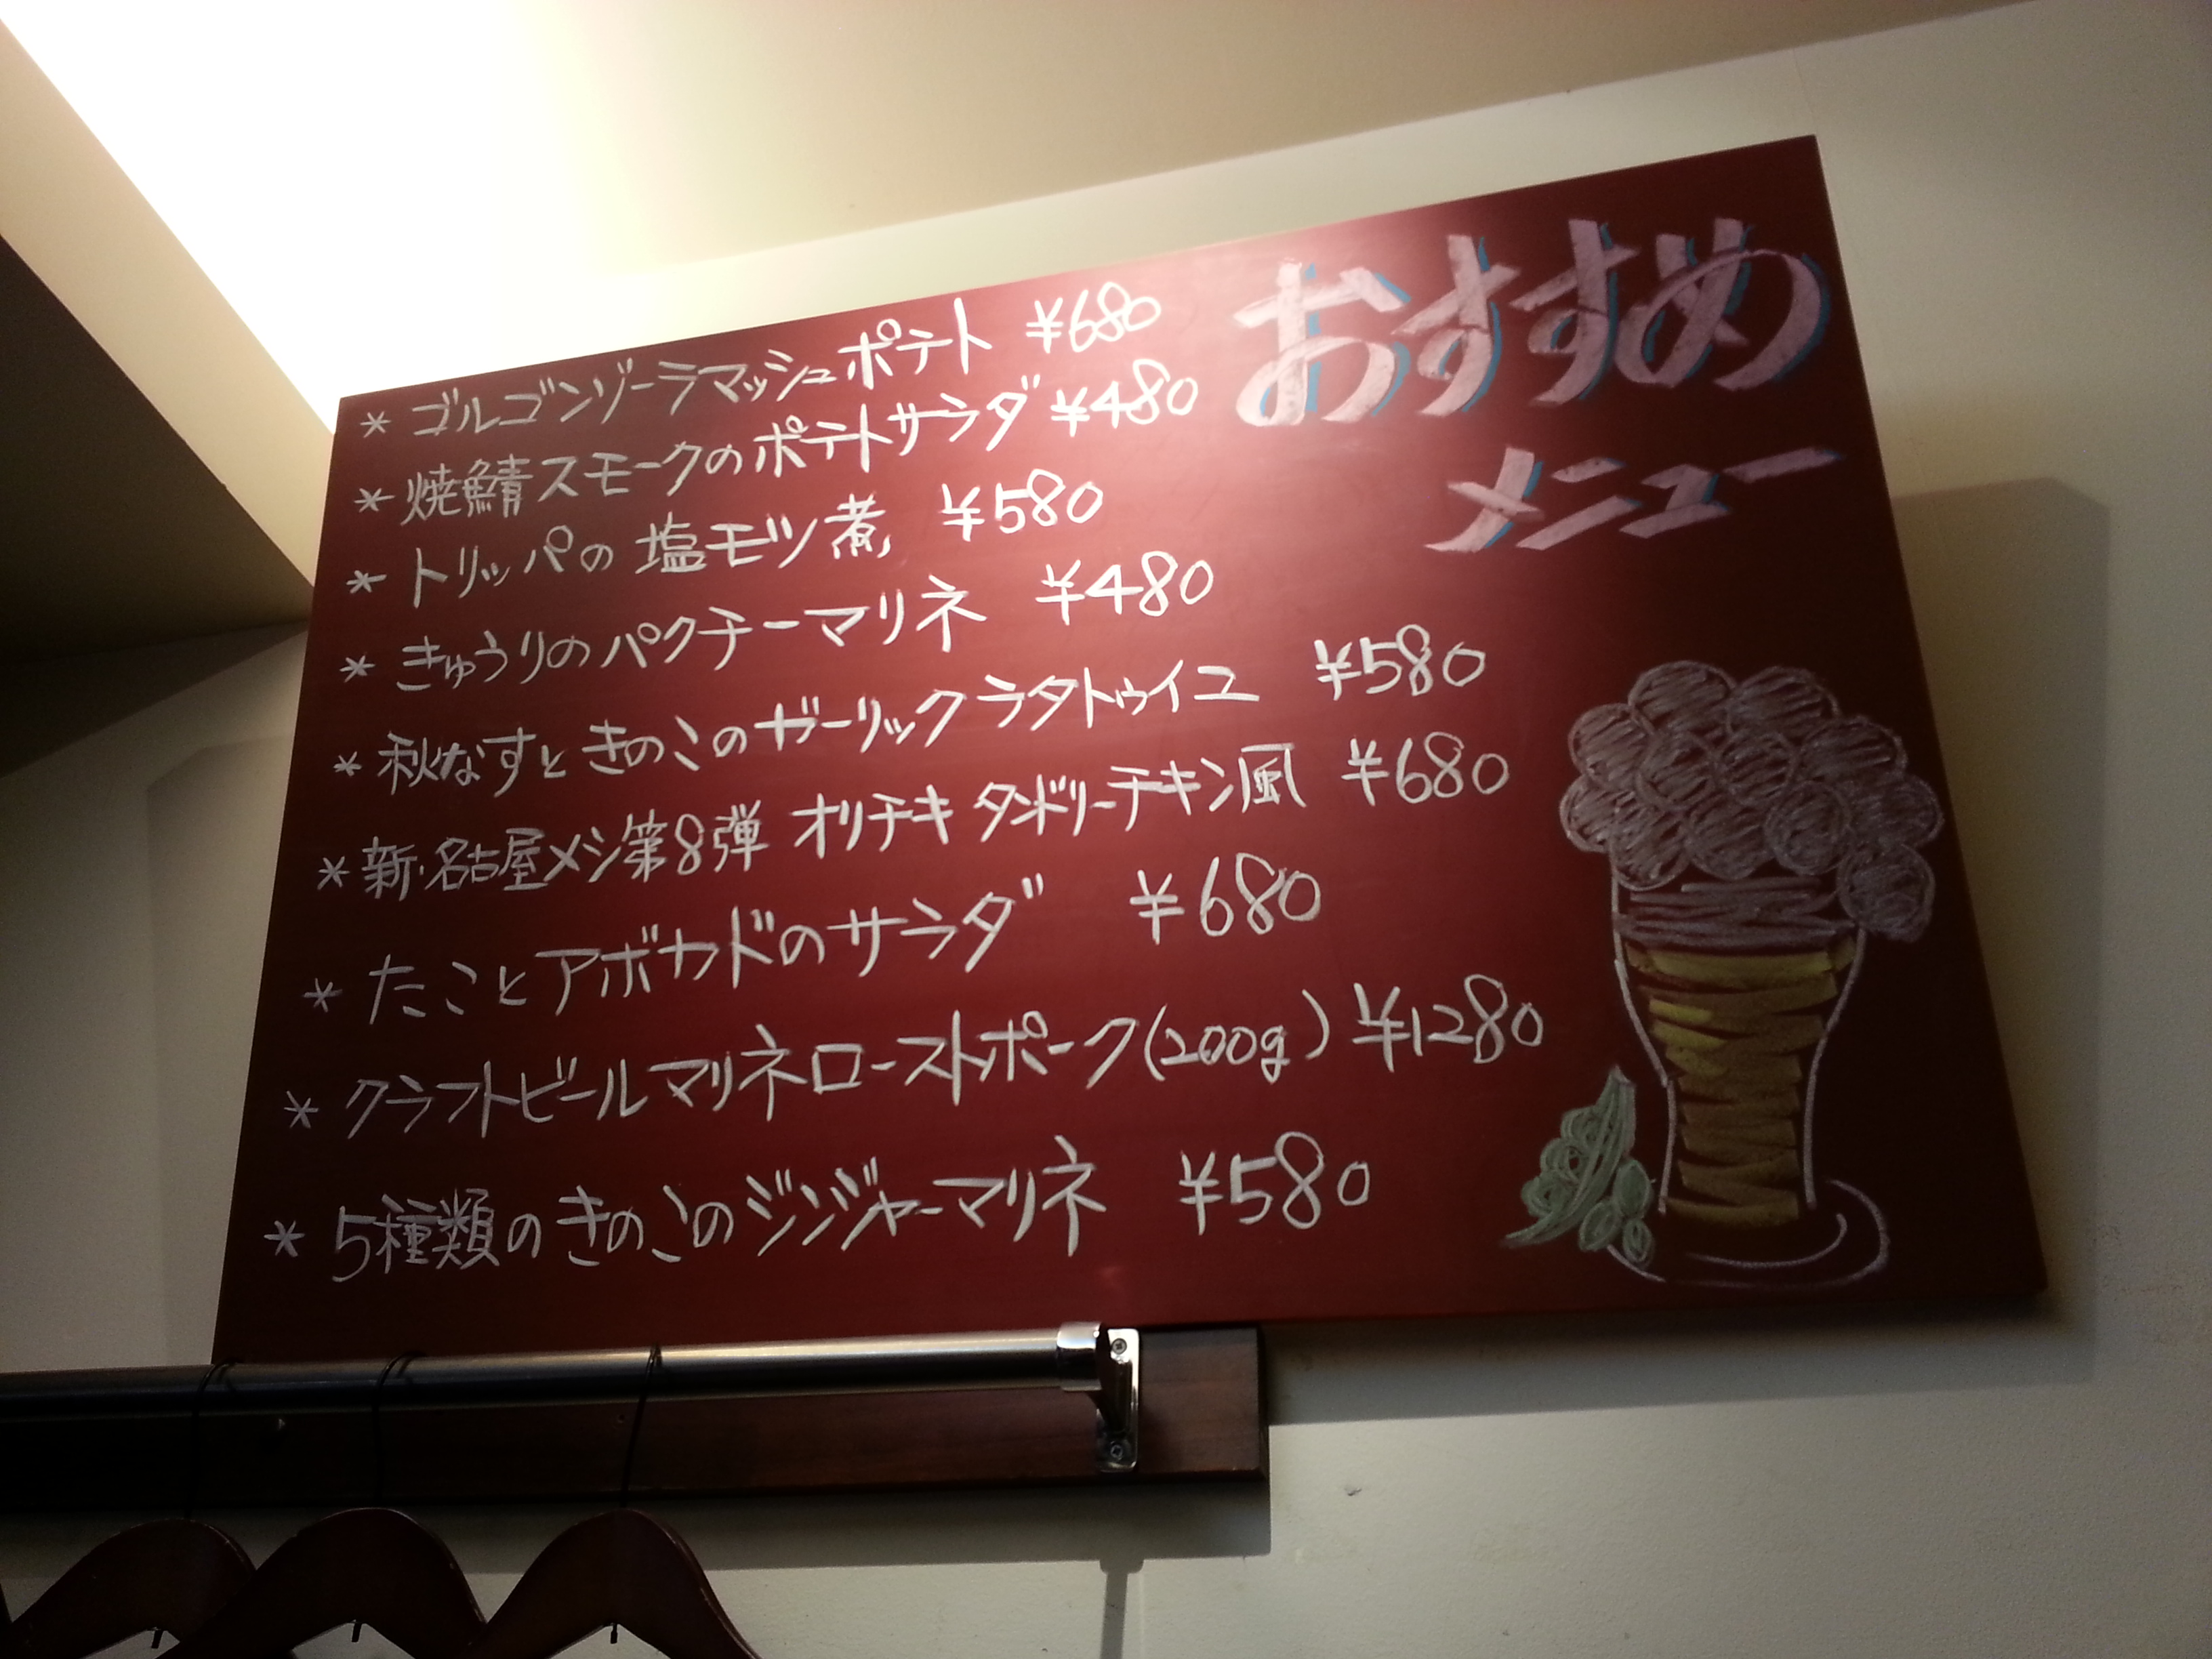 おすすめ
メニュー
* ゴルゴンゾーラマッシュポテト ¥680
* 焼鯖スモークのポテトサラダ ¥480
* トリッパの塩モツ煮 ¥580
* きゅうりのパクチーマリネ ¥480
* 秋なすときのこのガーリックラタトゥイユ ¥580
* 新・名古屋メシ第8弾 オリチキ タンドリーチキン風 ¥680
* たことアボカドのサラダ ¥680
* クラフトビールマリネローストポーク(200g) ¥1280
* 5種類のきのこのジンジャーマリネ ¥580